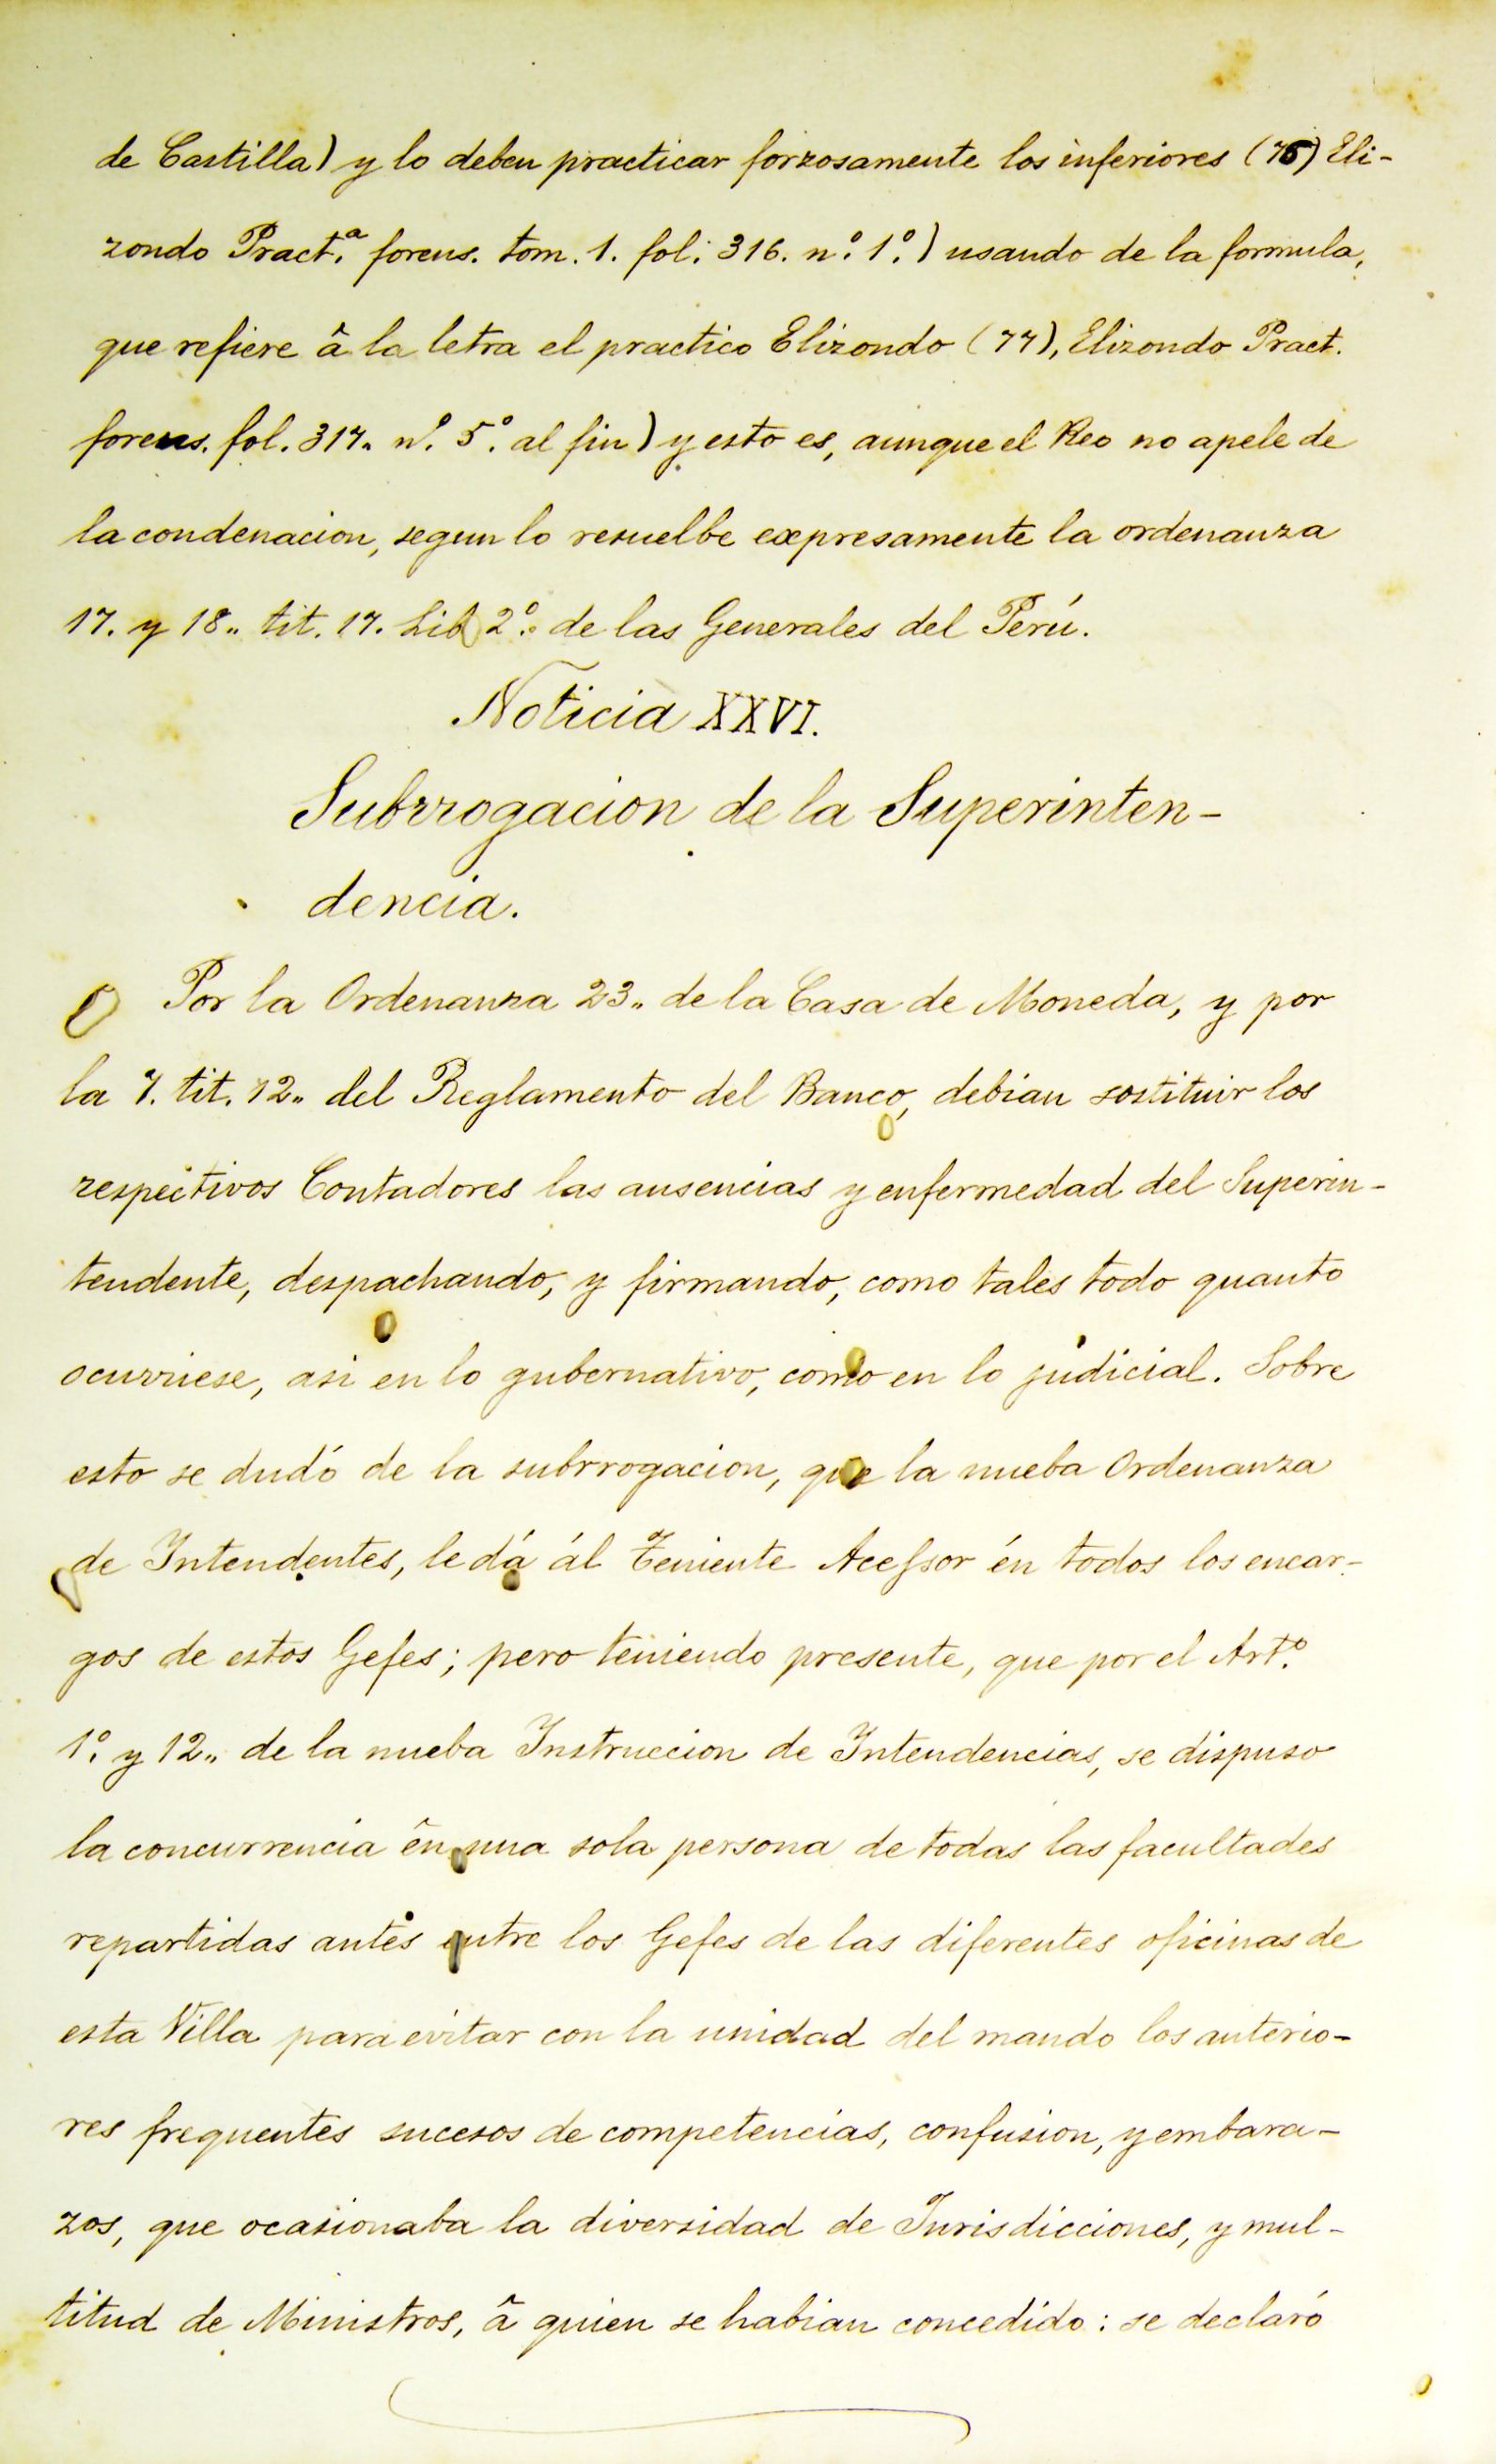 de Castilla) y lo deben practicar forzosamente los inferiores (76) Eli-
zondo Pract.ª forens. tom. 1. fol. 316. n.º 1.º) usando de la formula,
que refiere â la letra el practico Elizondo (77), Elizondo Pract.
forens. fol. 317.. n.º 5.º al fin) y esto es, aunque el Reo no apele de
la condenacion, segun lo resuelbe expresamente la ordenanza
17. y 18.. tit. 17. Lib 2.º de las Generales del Perú.
Noticia XXVI.
Subrrogacion de la Superinten-
dencia.
Por la Ordenanza 23.. de la Casa de Moneda, y por
la 7. tit. 12.. del Reglamento del Banco, debian sostituir los
respectivos Contadores las ausencias y enfermedad del Superin-
tendente, despachando, y firmando, como tales todo quanto
ocurriese, asi en lo gubernativo, como en lo judicial. Sobre
esto se dudó de la subrrogacion, que la nueba Ordenanza
de Intendentes, le dá ál Teniente Acessor én todos los encar-
gos de estos Gefes; pero teniendo presente, que por el Art.º
1.º y 12.. de la nueba Instruccion de Intendencias, se dispuso
la concurrencia ên una sola persona de todas las facultades
repartidas antes entre los Gefes de las diferentes oficinas de
esta Villa para evitar con la unidad del mando los anterio-
res frequentes sucesos de competencias, confusion, y embara-
zos, que ocasionaba la diversidad de Jurisdicciones, y mul-
titud de Ministros, â quien se habian concedido: se declaró